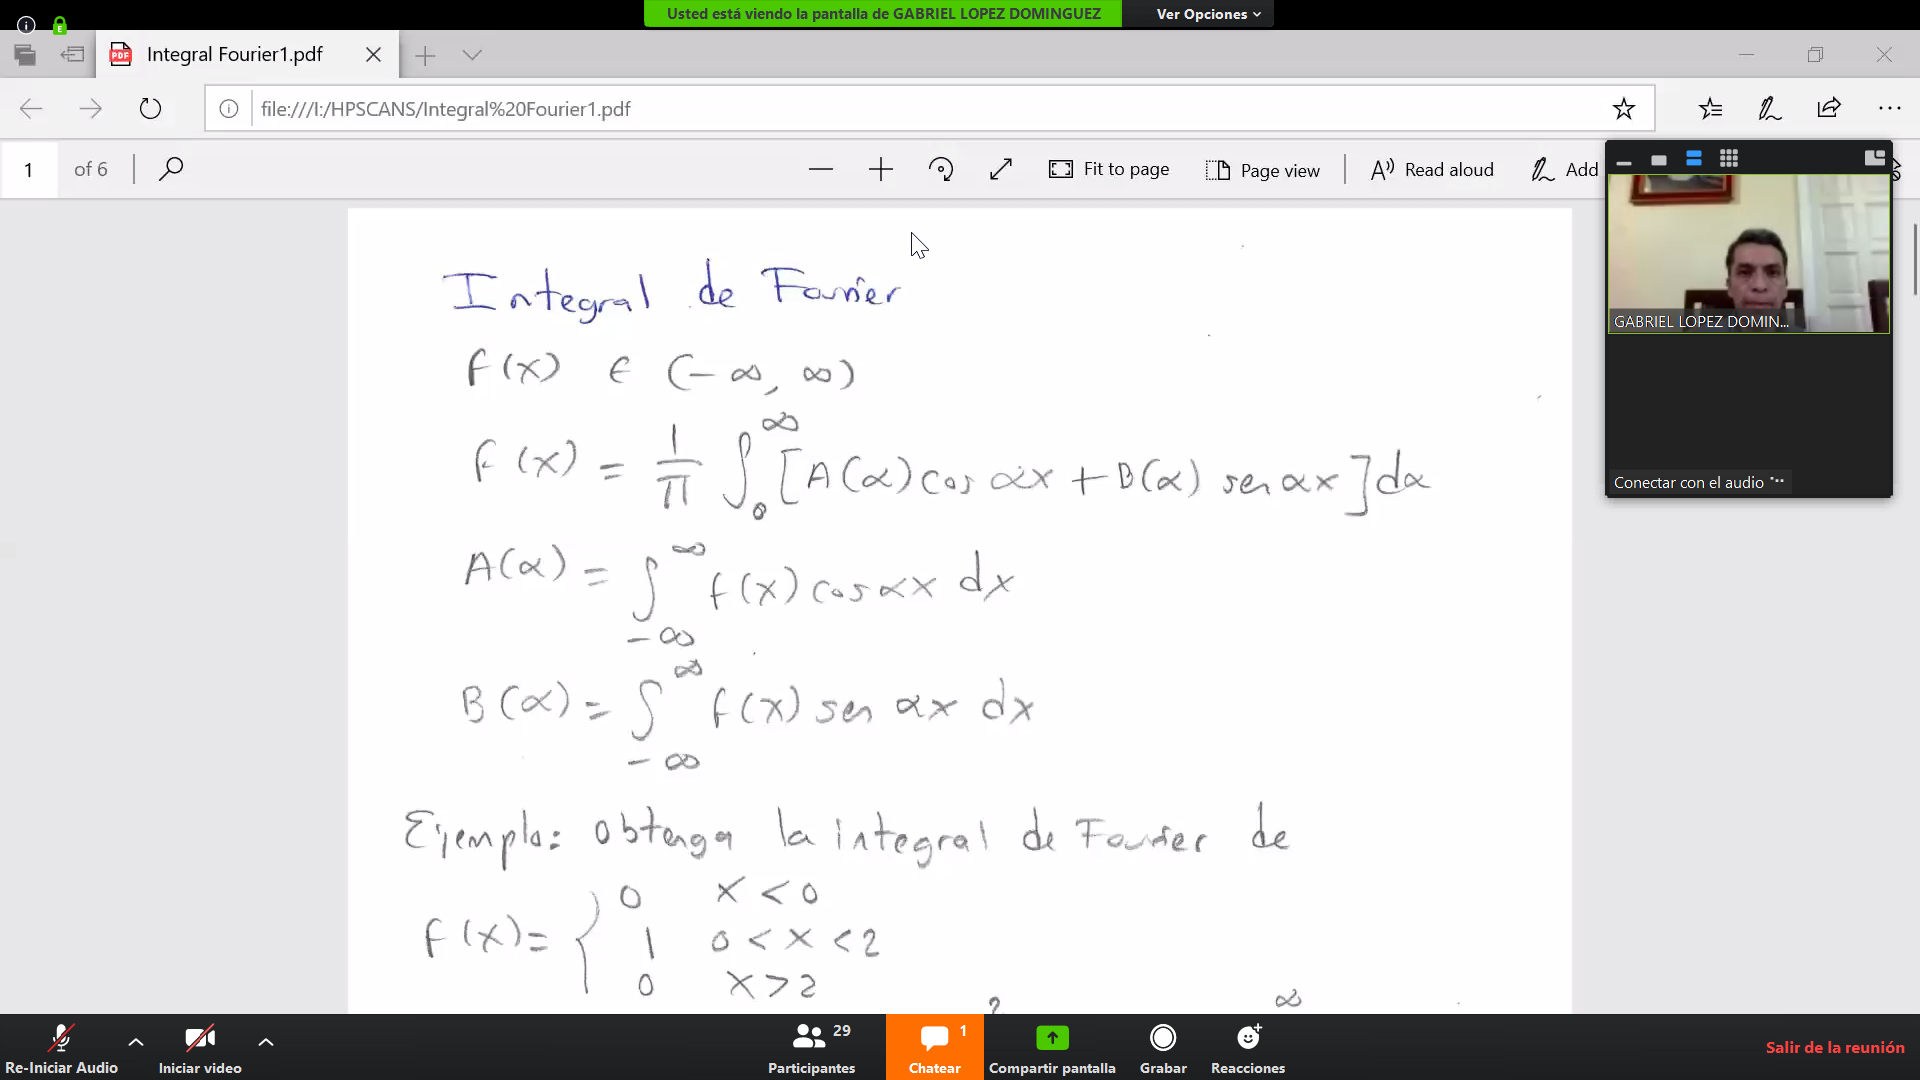 Usted está viendo la pantalla de GABRIEL LOPEZ DOMINGUEZ Ver Opciones
Integral Fourier1.pdf
file:///I:/HPSCANS/Integral%20Fourier1.pdf
1 of 6 Fit to page Page view Read aloud Add
GABRIEL LOPEZ DOMIN...
Conectar con el audio
Integral de Fourier
f(x) ∈ (-∞, ∞)
f(x) = 1/π ∫₀^∞ [A(α) cos αx + B(α) sen αx] dα
A(α) = ∫_{-∞}^{∞} f(x) cos αx dx
B(α) = ∫_{-∞}^{∞} f(x) sen αx dx
Ejemplo: Obtenga la integral de Fourier de
f(x) = { 0 x < 0
1 0 < x < 2
0 x > 2
2 ∞
29 1
Re-Iniciar Audio Iniciar video Participantes Chatear Compartir pantalla Grabar Reacciones Salir de la reunión